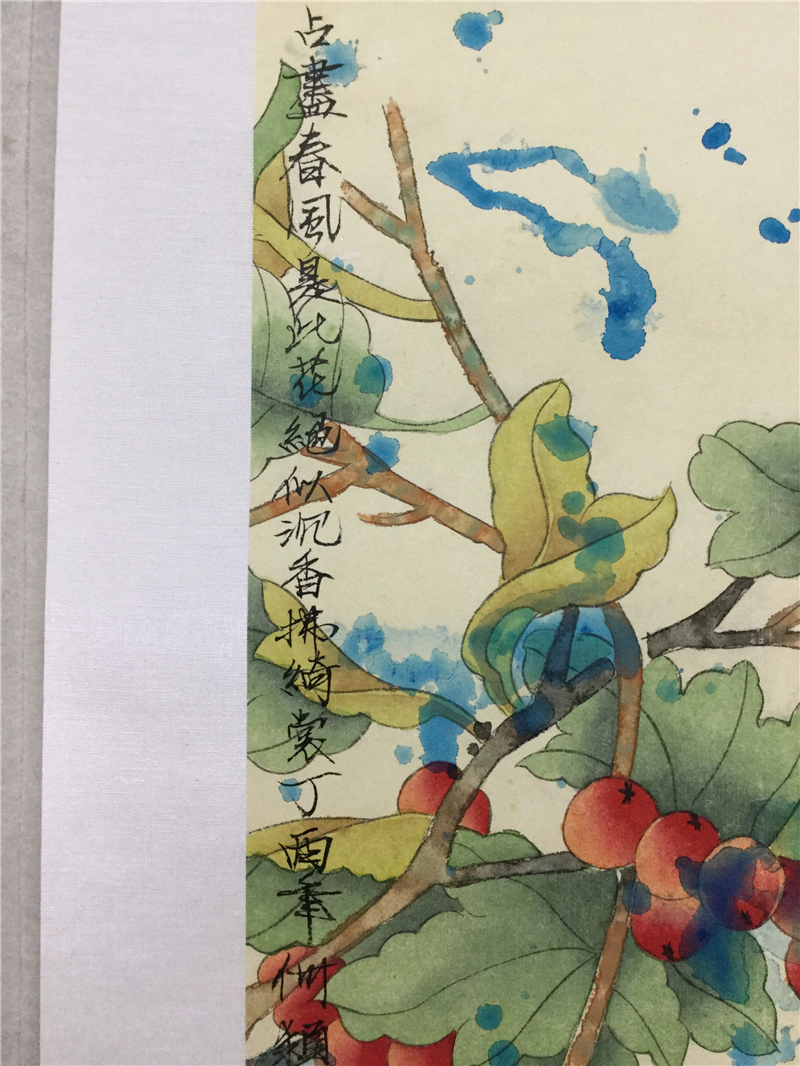 占盡春風是此花絶似沉香拂綺裳丁酉年